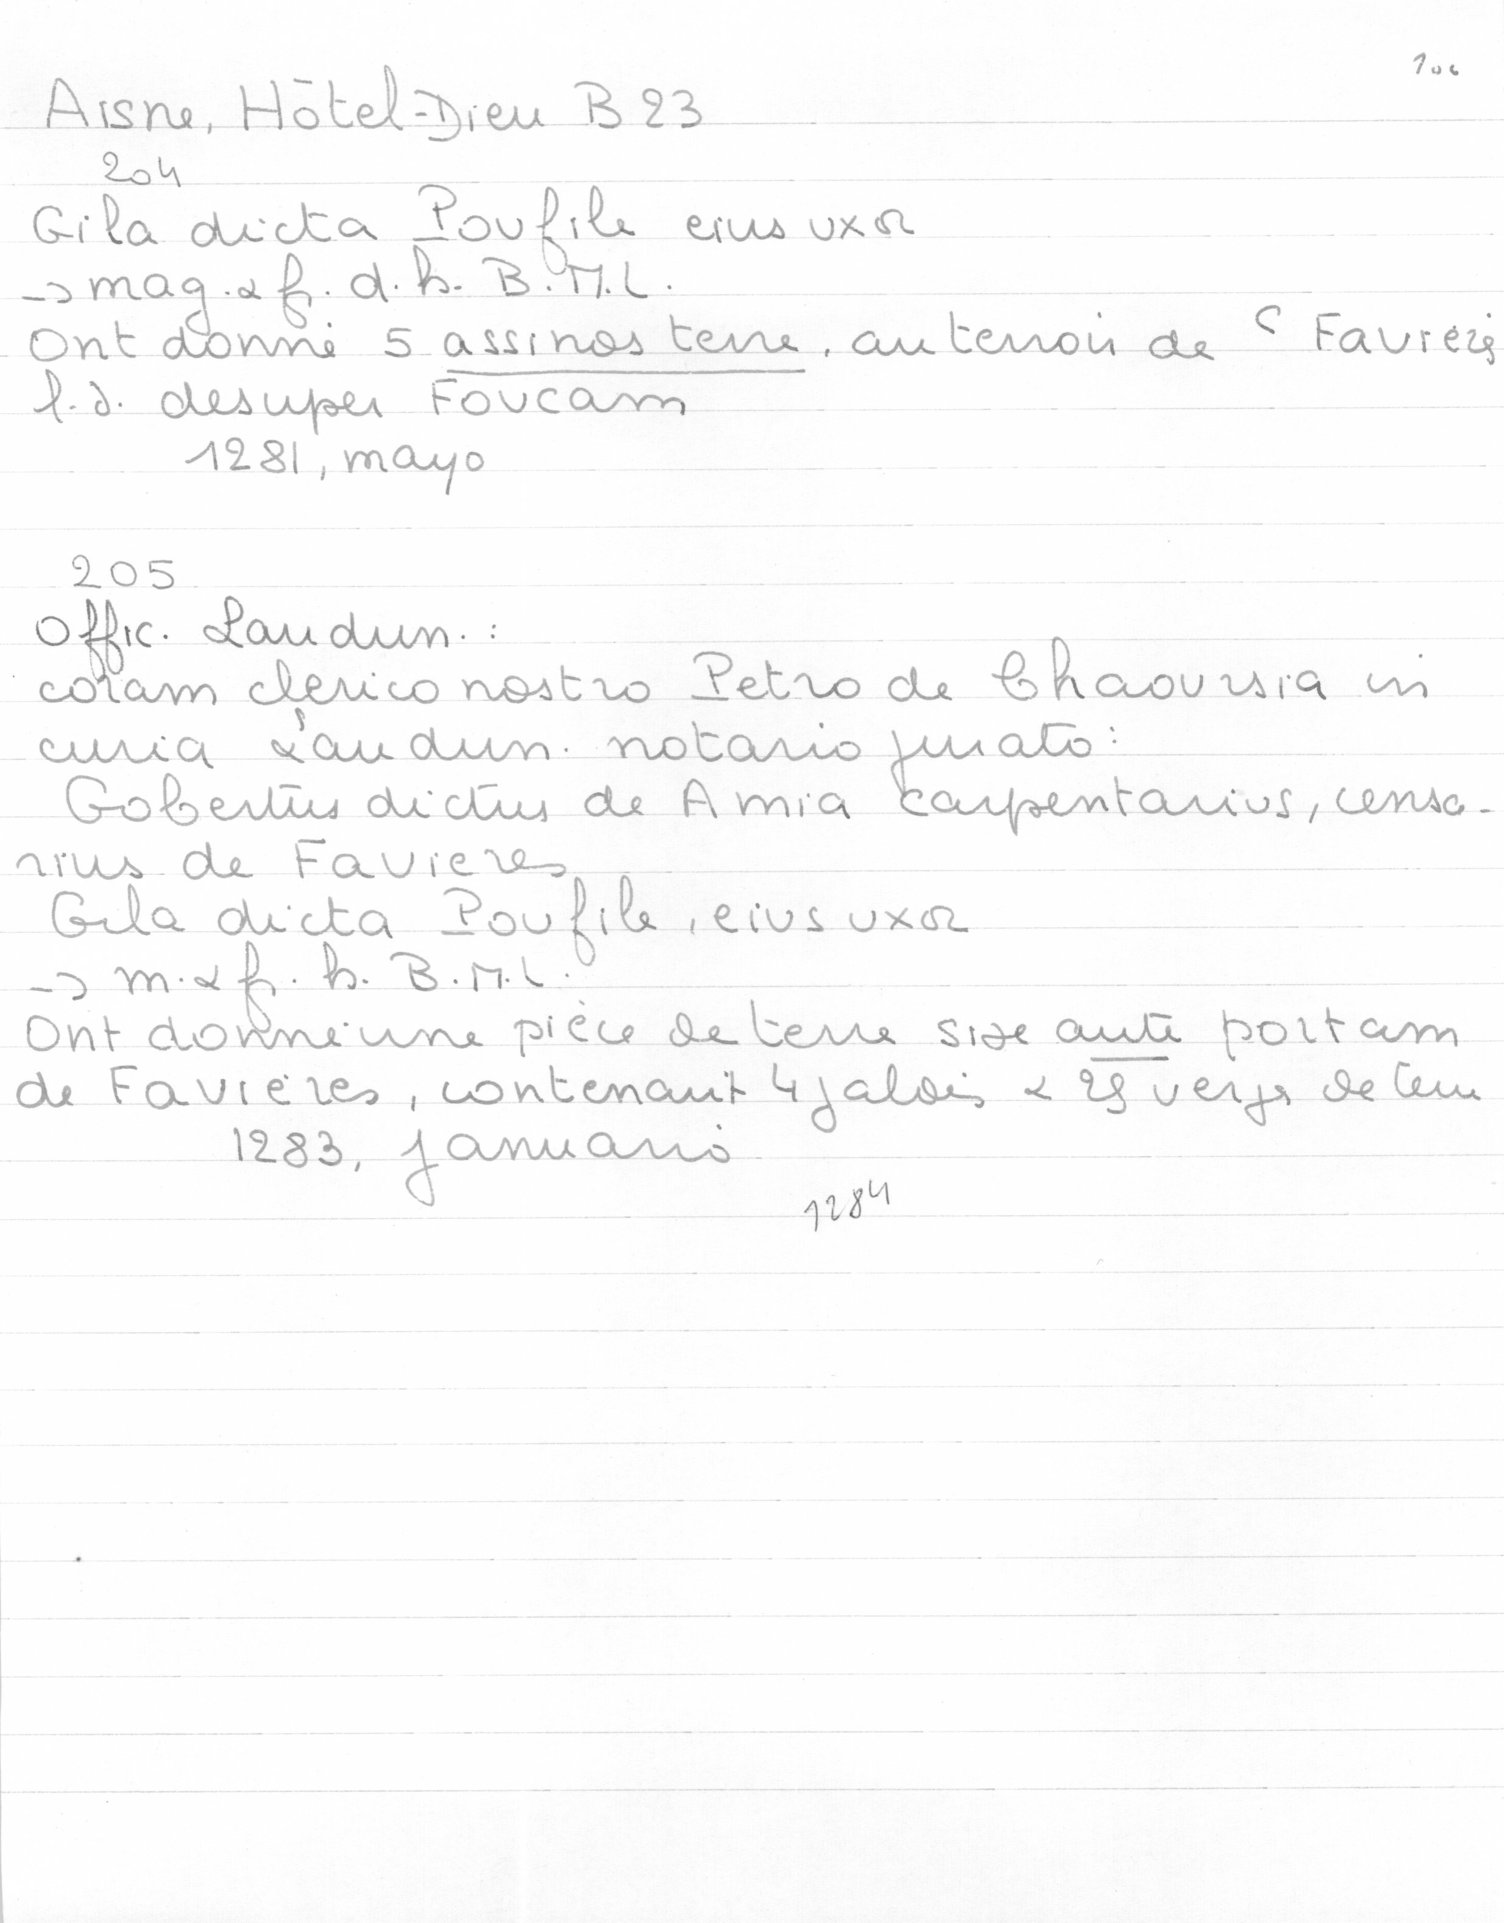 106
Aisne, Hôtel-Dieu B 23
204
Gila dicta Poufile eius uxor
-> mag. & fr. d. h. B.M.L.
Ont donné 5 assinos terre, au terroir de Favières
l.d. desuper Foucam
1281, mayo
205
Offic. Laudun. :
coram clerico nostro Petro de Chaoursia in
curia Laudun. notario jurato :
Gobertus dictus de Amia carpentarius, censa-
rius de Favieres
Gila dicta Poufile, eius uxor
-> m. & fr. h. B.M.L.
Ont donné une pièce de terre sise ante portam
de Favières, contenant 4 jalois & 29 verges de terre
1283, januario
1284